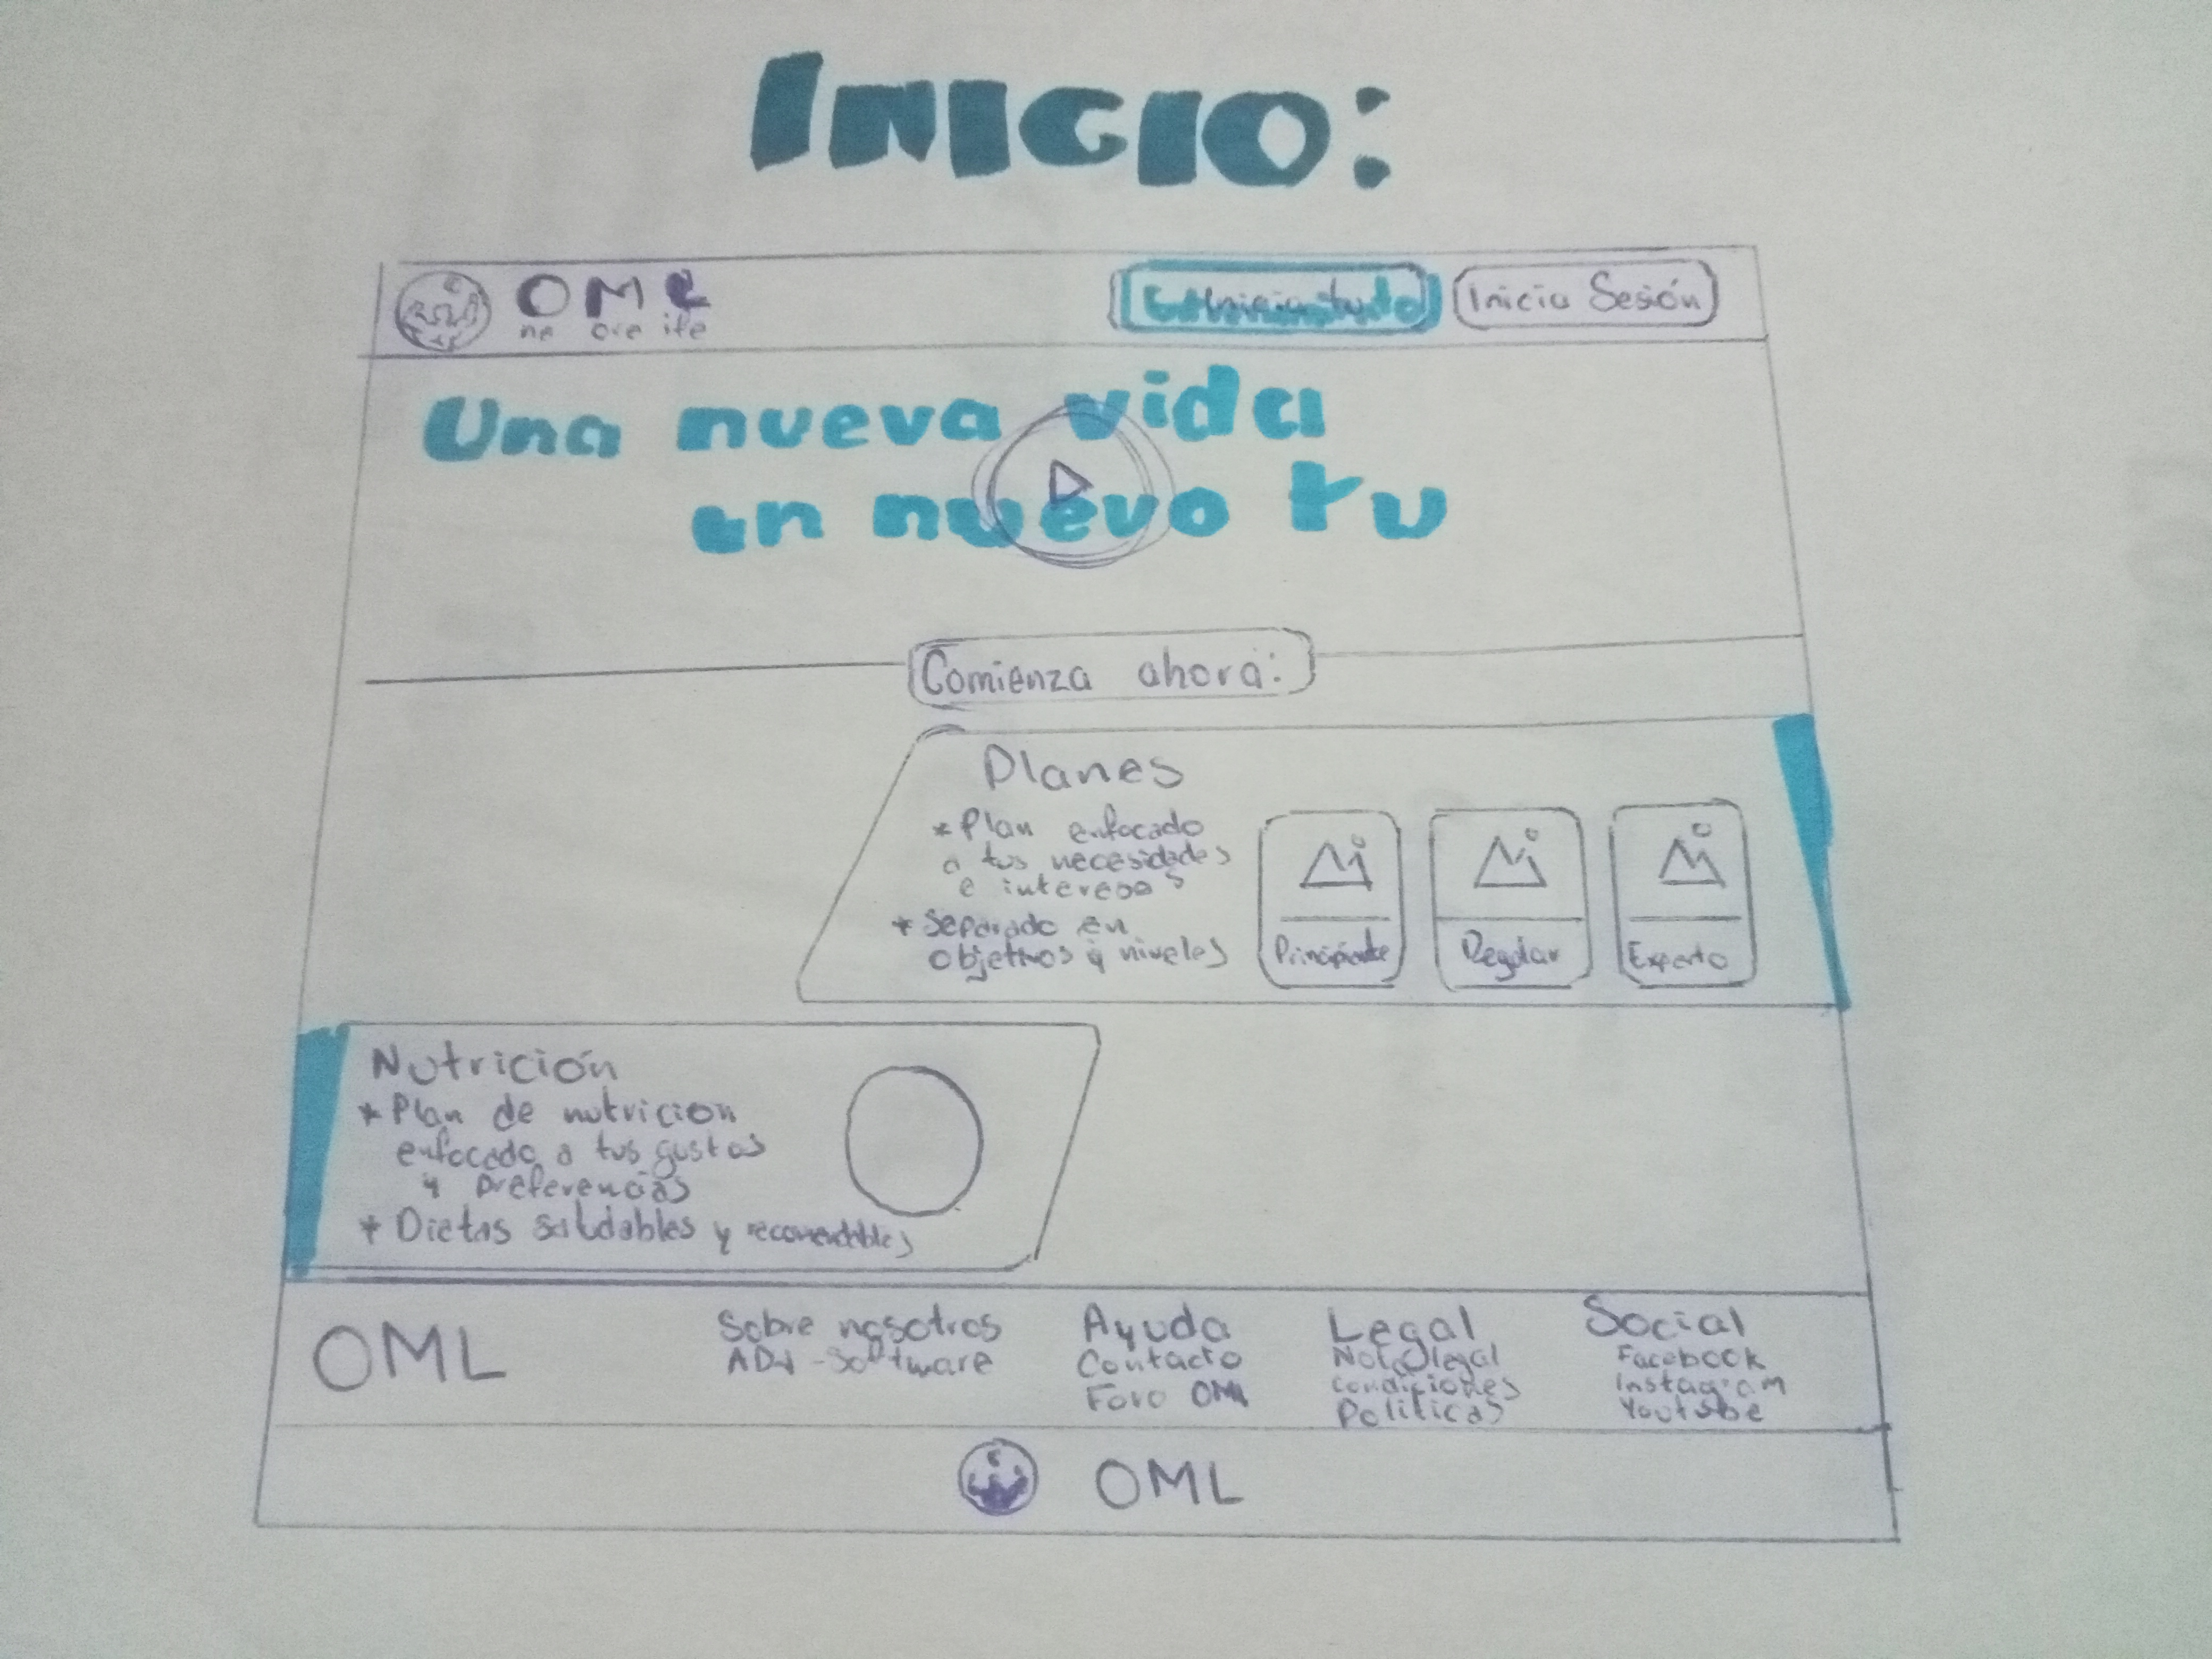 INICIO:
OML
ne ore ife
Inicia Sesión
Una nueva vida
un nuevo tu
Comienza ahora:
Planes
*Plan enfocado
a tus necesidades
e intereses
*Separado en
objetivos y niveles
Principiante
Regular
Experto
Nutrición
*Plan de nutricion
enfocado a tus gustos
y preferencias
*Dietas saludables y recomendables
OML
Sobre nosotros
-Software
Ayuda
Contacto
Foro OML
Legal
Nota legal
condiciones
Politicas
Social
Facebook
Instagram
Youtube
OML